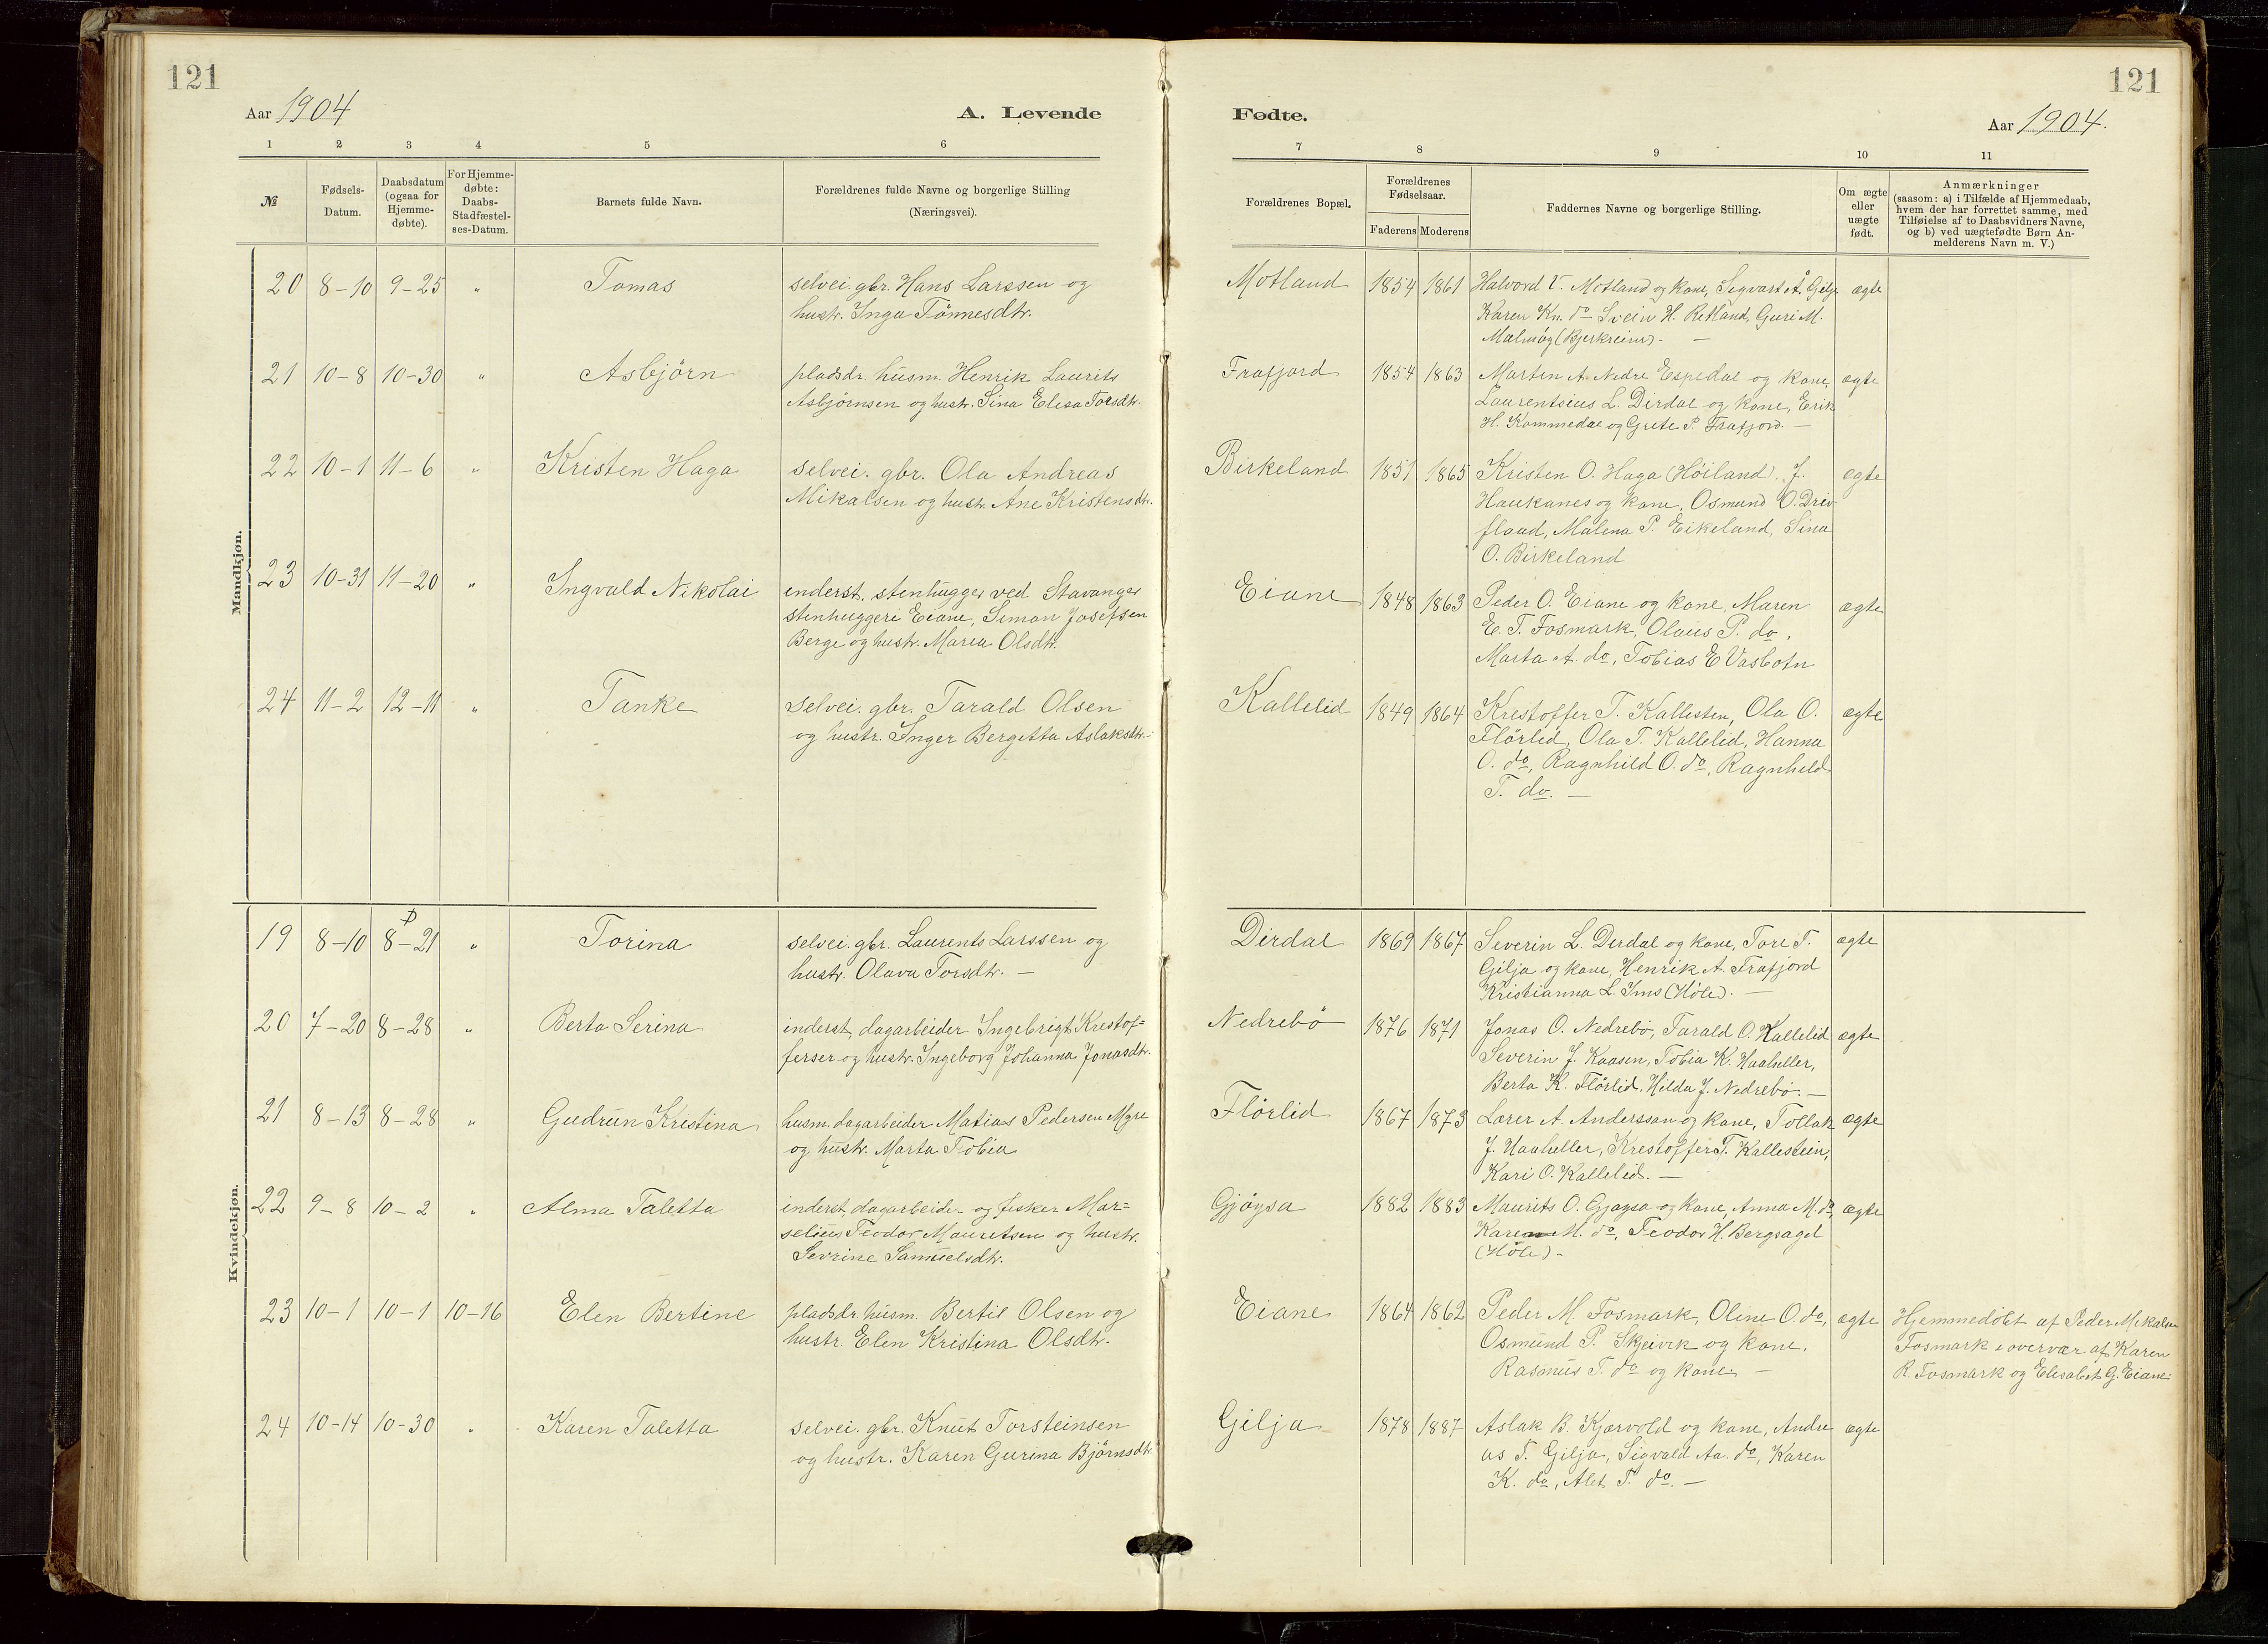 121
Aar 1904
A. Levende
1 2 3 4 5 6
№ Fødsels-Datum. Daabsdatum (ogsaa for Hjemme-døbte). For Hjemme-døbte: Daabs-Stadfæstel-ses-Datum. Barnets fulde Navn. Forældrenes fulde Navne og borgerlige Stilling (Næringsvei).
Mandkjøn.
20 8-10 9-25 " Tomas selvei. gbr. Hans Larssen og
hustr. Inga Tönnesdtr.
21 10-8 10-30 " Asbjörn pladsdr. husm. Henrik Laurits
Asbjörnsen og hustr. Sina Elisa Torsdtr.
22 10-1 11-6 " Kristen Haga selvei. gbr. Ola Andreas
Mikalsen og hustr. Ane Kristensdtr.
23 10-31 11-20 " Ingvald Nikolai inderst, stenhugger ved Stavanger
stenhuggeri Eiane, Simon Josefsen
Berge og hustr. Maria Olsdtr.
24 11-2 12-11 " Tanke selvei. gbr. Tarald Olsen
og hustr. Inger Bergetta Aslaksdtr.
Kvindekjøn.
19 8-10 8-21 " Torina selvei. gbr. Laurents Larssen og
hustr. Olava Torsdtr. —
20 7-20 8-28 " Berta Serina inderst, dagarbeider Ingebrigt Krestof=
fersen og hustr. Ingeborg Johanna Jonasdtr.
21 8-13 8-28 " Gudrun Kristina husm. dagarbeider Matias Pedersen Myre
og hustr. Marta Tobia
22 9-8 10-2 " Alma Taletta inderst, dagarbeider og fisker Mar=
selius Teodor Mauritsen og hustr.
Sevrine Samuelsdtr.
23 10-1 10-1 10-16 Elen Bertine pladsdr. husm. Bertil Olsen og
hustr. Elen Kristina Olsdtr.
24 10-14 10-30 " Karen Taletta selvei. gbr. Knut Torsteinsen
og hustr. Karen Gurina Björnsdtr.
121
Fødte.
Aar 1904.
7 8 9 10 11
Forældrenes Bopæl. Forældrenes Fødselsaar. Faderens Moderens Faddernes Navne og borgerlige Stilling. Om ægte eller uægte født. Anmærkninger (saasom: a) i Tilfælde af Hjemmedaab, hvem der har forrettet samme, med Tilføielse af to Daabsvidners Navne, og b) ved uægtefødte Børn An-melderens Navn m. V.)
Motland 1854 1861 Halvord V. Motland og kone, Sigvart Å. Gilje ægte
Karen Kn. do Svein H. Retland, Guri M.
Malmög (Bjerkreim). —
Frafjord 1854 1863 Marten A. Nedre Espedal og kone, ægte
Laurentsius L. Dirdal og kone, Erik
H. Kommedal og Grete P. Frafjord. —
Birkeland 1851 1865 Kristen O. Haga (Höiland), J. ægte
Haukanes og kone, Osmund O. Driv
fland, Malena P. Eikeland, Sina
O. Birkeland
Eiane 1848 1863 Peder O. Eiane og kone, Maren ægte
E. T. Fosmark, Olaus P. do,
Marta A. do, Tobias E Vasbotn
Kallelid 1849 1864 Krestoffer T. Kallesten, Ola O. ægte
Flörlid, Ola T. Kallelid, Hanna
O. do, Ragnhild O. do, Ragnhild
T. do. —
Dirdal 1869 1867 Severin L. Dirdal og kone, Tore T. ægte
Gilja og kone, Henrik A Frafjord
Kristianna L. Ims (Höle). —
Nedrebö 1876 1871 Jonas O. Nedrebö, Tarald O. Kallelid ægte
Severin J. Kaasen, Tobia K. Haaheller,
Berta K. Flörlid, Hilda J. Nedrebö. —
Flörlid 1867 1873 Lærer A. Anderssan og kone, Tollak ægte
J. Haaheller, Krestoffer T. Kallestein,
Kari O. Kallelid. —
Gjöysa 1882 1883 Maurits O. Gjøysa og kone, Anna M. do, ægte
Karen M. do, Teodor H. Bergsagel
(Höle). —
Eiane 1864 1862 Peder M Fosmark, Oline O. do, ægte Hjemmedöbt af Peder Mikalsen
Osmund P. Skjeivik og kone, Fosmark i overvær af Karen
Rasmus T. do og kone — R. Fosmark og Elisabet G. Eiane.
Gilja 1878 1887 Aslak B. Kjærvold og kone, Andre ægte
as T. Gilja, Sigvald Aa. do, Karen
K. do, Alet T. do. —